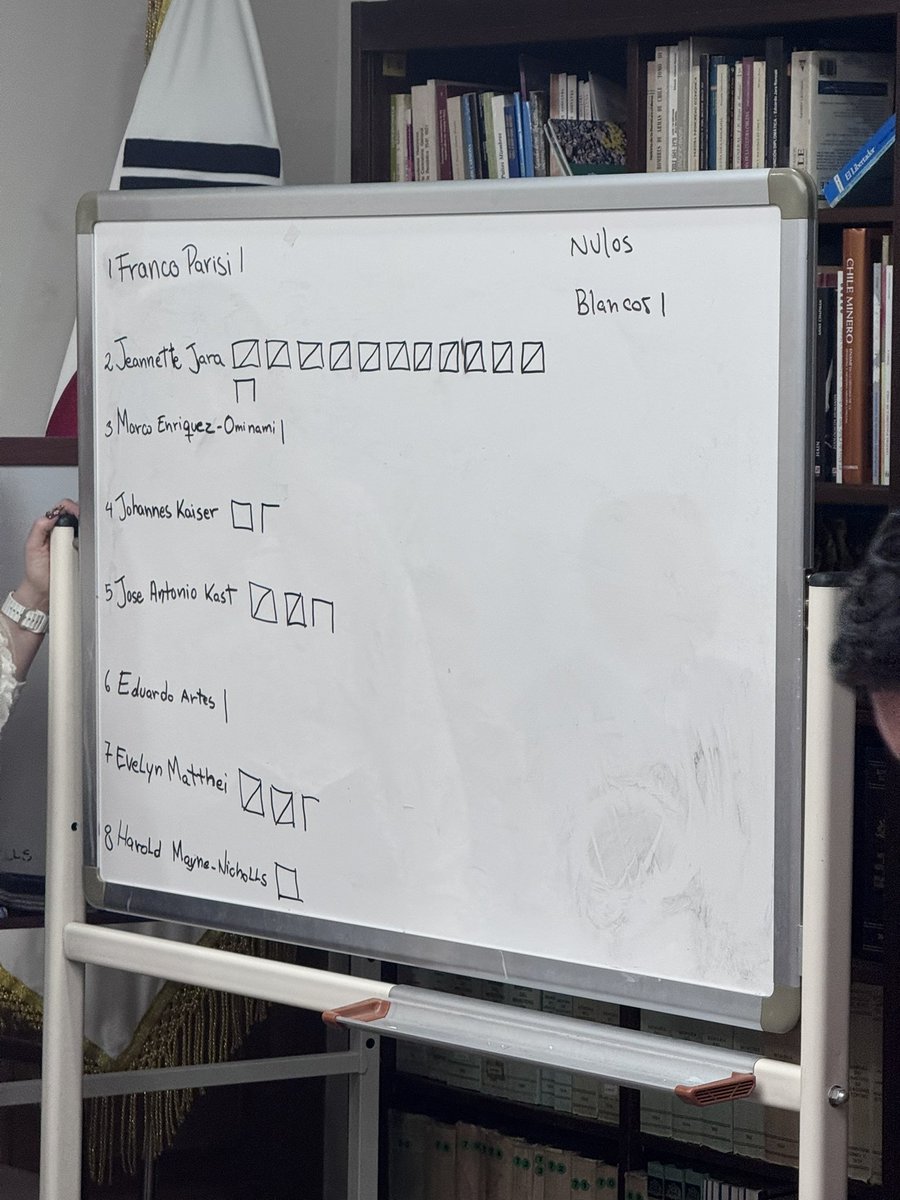 1 Franco Parisi |
Nulos
Blancos |
2 Jeannette Jara
3 Marco Enriquez-Ominami |
4 Johannes Kaiser
5 Jose Antonio Kast
6 Eduardo Artes |
7 Evelyn Matthei
8 Harold Mayne-Nicholls
El Libertador
CHILE MINERO